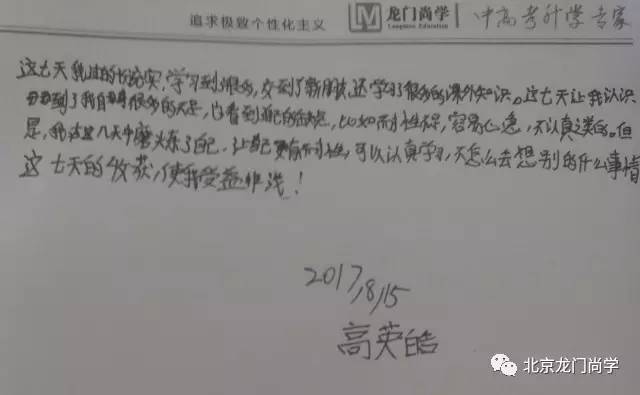 追求极致个性化主义 龙门尚学 Longmen Education 中高考升学专家
这七天我过的很充实,学习到很多,交到了新朋友,还学习了很多的课外知识。这七天让我认识
到了我自身很多的不足,也看到自己的缺点,比如耐性不足,容易心急,不认真之类的。但
是,我在这几天中磨炼了自己,让自己更有耐性,可以认真学习,不怎么去想别的什么事情
这七天的收获,使我受益非浅!
2017,8,15
高英皓
北京龙门尚学